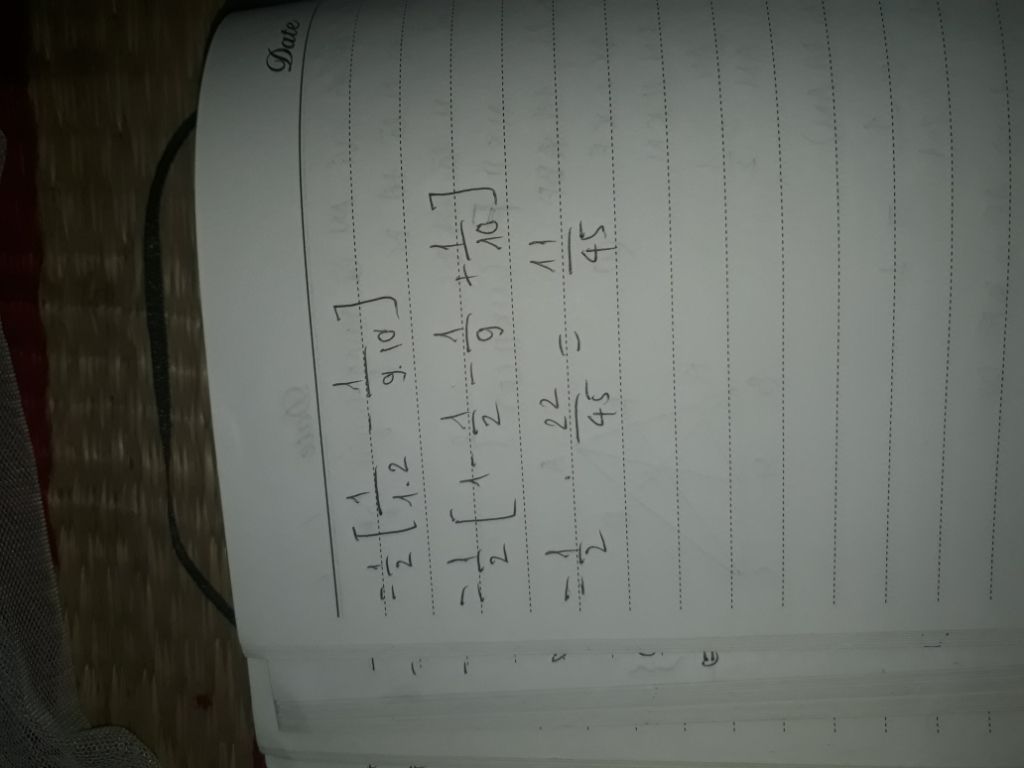 Date
= 1/2 [ 1/1.2 - 1/9.10 ]
= 1/2 [ 1 - 1/2 - 1/9 + 1/10 ]
= 1/2 . 22/45 = 11/45